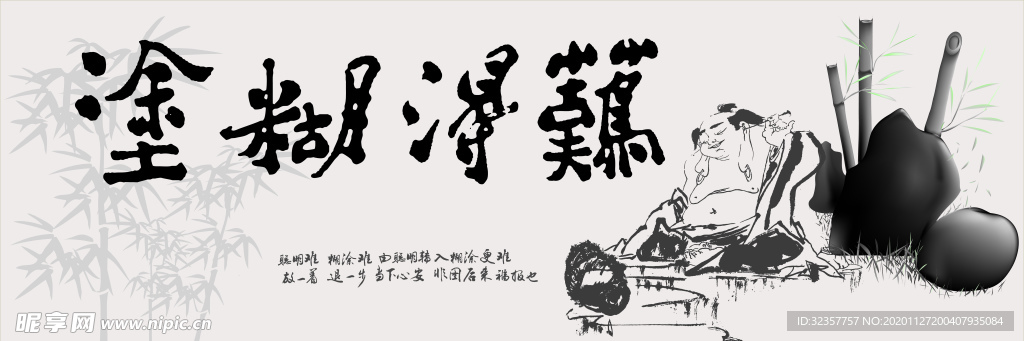 難得糊塗
聪明难 糊涂难 由聪明转入糊涂更难
放一着 退一步 当下心安 非图后来福报也
昵享网 www.nipic.cn
ID:32357757 NO:20201127200407935084